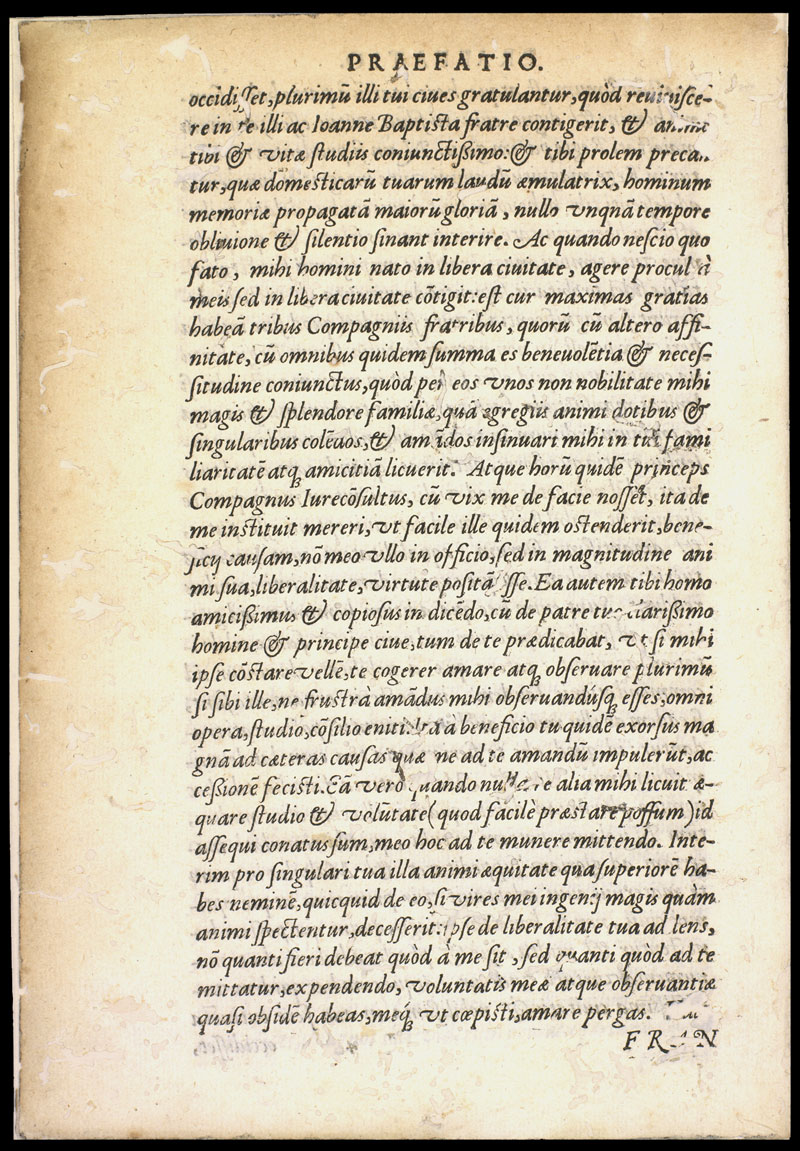 PRAEFATIO.
plurimū illi tui ciues gratulantur, quòd reuiuisce-
re in te illi ac Ioanne Baptista fratre contigerit, &
tibi & vitæ studiis coniunctißimo: & tibi prolem precan
tur, quæ domesticarū tuarum laudū æmulatrix, hominum
memoriæ propagatā maiorū gloriā, nullo vnquā tempore
obliuione & silentio sinant interire. Ac quando nescio quo
fato, mihi homini nato in libera ciuitate, agere procul à
meis sed in libera ciuitate cōtigit: est cur maximas gratias
habeā tribus Compagniis fratribus, quorū cū altero affi-
nitate, cū omnibus quidem summa es beneuolētia & neces-
situdine coniunctus, quòd per eos vnos non nobilitate mihi
magis & splendore familiæ, quā egregiis animi dotibus &
singularibus insinuari mihi in tui fami
liaritatē atq; amicitiā licuerit. Atque horū quidē princeps
Compagnus Iurecōsultus, cū vix me de facie nosset, ita de
me instituit mereri, vt facile ille quidem ostenderit, bene-
ficij causam, nō meo vllo in officio, sed in magnitudine ani
mi sua, liberalitate, virtute positā esse. Ea autem tibi homo
amicißimus & copiosus in dicēdo, cū de patre tuo clarißimo
homine & principe ciue, tum de te prædicabat, vt si mihi
ipse cōstare vellē, te cogerer amare atq; obseruare plurimū
si sibi ille, ne frustrà amādus mihi obseruandúsq; esses, omni
opera, studio, cōsilio à beneficio tu quidē exorsus ma
gnā ad cæteras causas quæ me ad te amandū impulerūt, ac
ceßionē fecisti. Eā verò quando nulla re alia mihi licuit æ-
quare studio & volūtate (quod facilè præstare possum) id
assequi conatus sum, meo hoc ad te munere mittendo. Inte-
rim pro singulari tua illa animi æquitate qua superiorē ha-
bes neminē, quicquid de eo, si vires mei ingenij magis quàm
animi spectentur, decesserit: ipse de liberalitate tua addens,
nō quanti fieri debeat quòd à me sit, sed quanti quòd ad te
mittatur, expendendo, voluntatis meæ atque obseruantiæ
quasi obsidē habeas, meq́; vt cœpisti, amare pergas.
FRAN